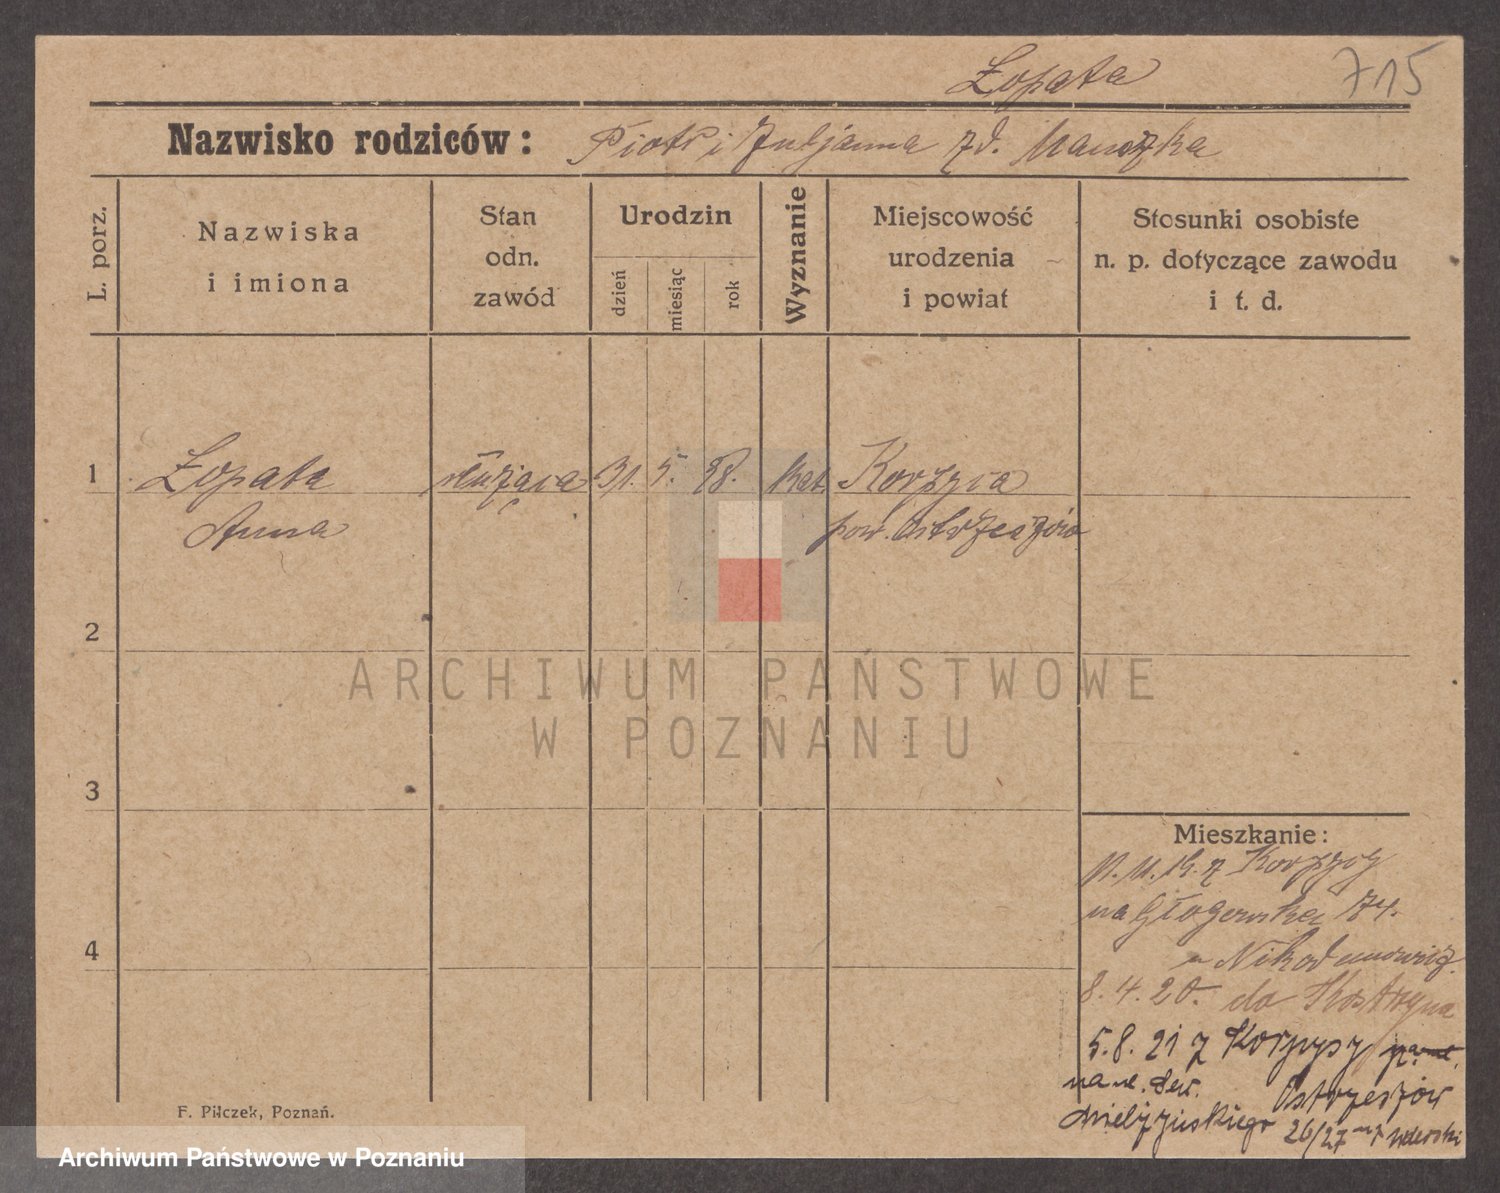 Łopata
715
Nazwisko rodziców: Piotr i Juljanna zd.
L. porz.
Nazwiska
i imiona
Stan
odn.
zawód
Urodzin
dzień
miesiąc
rok
Wyznanie
Miejscowość
urodzenia
i powiat
Stosunki osobiste
n. p. dotyczące zawodu
i t. d.
1 Łopata służąca 31. 5. 98. kat. Korpysa
Anna pow. Ostrzeszów
2
ARCHIWUM PAŃSTWOWE
W POZNANIU
3
Mieszkanie:
z Korpysy
na Głogowska 74.
4
8. 4. 20. do Kostrzyna
5.8. 21 z Korpysy
Ostrzeszów
Mielżyńskiego 26/27
F. Pilczek, Poznań.
Archiwum Państwowe w Poznaniu